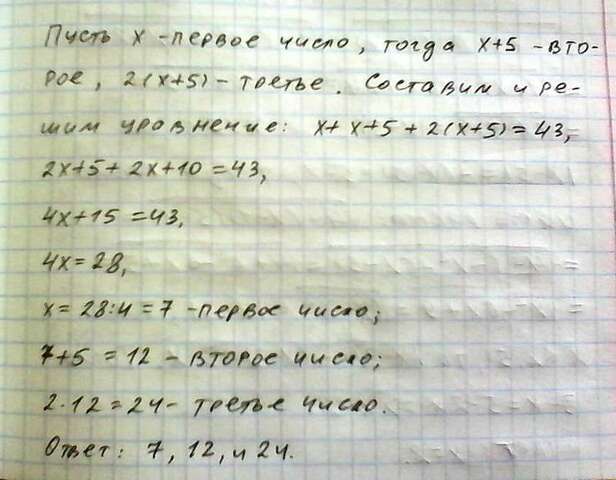 Пусть x - первое число, тогда x+5 - вто-
рое, 2(x+5) - третье. Составим и ре-
шим уровнение: x+x+5+2(x+5)=43,
2x+5+2x+10=43,
4x+15=43,
4x=28,
x=28:4=7 - первое число;
7+5=12 - второе число;
2·12=24 - третье число.
Ответ: 7, 12, и 24.